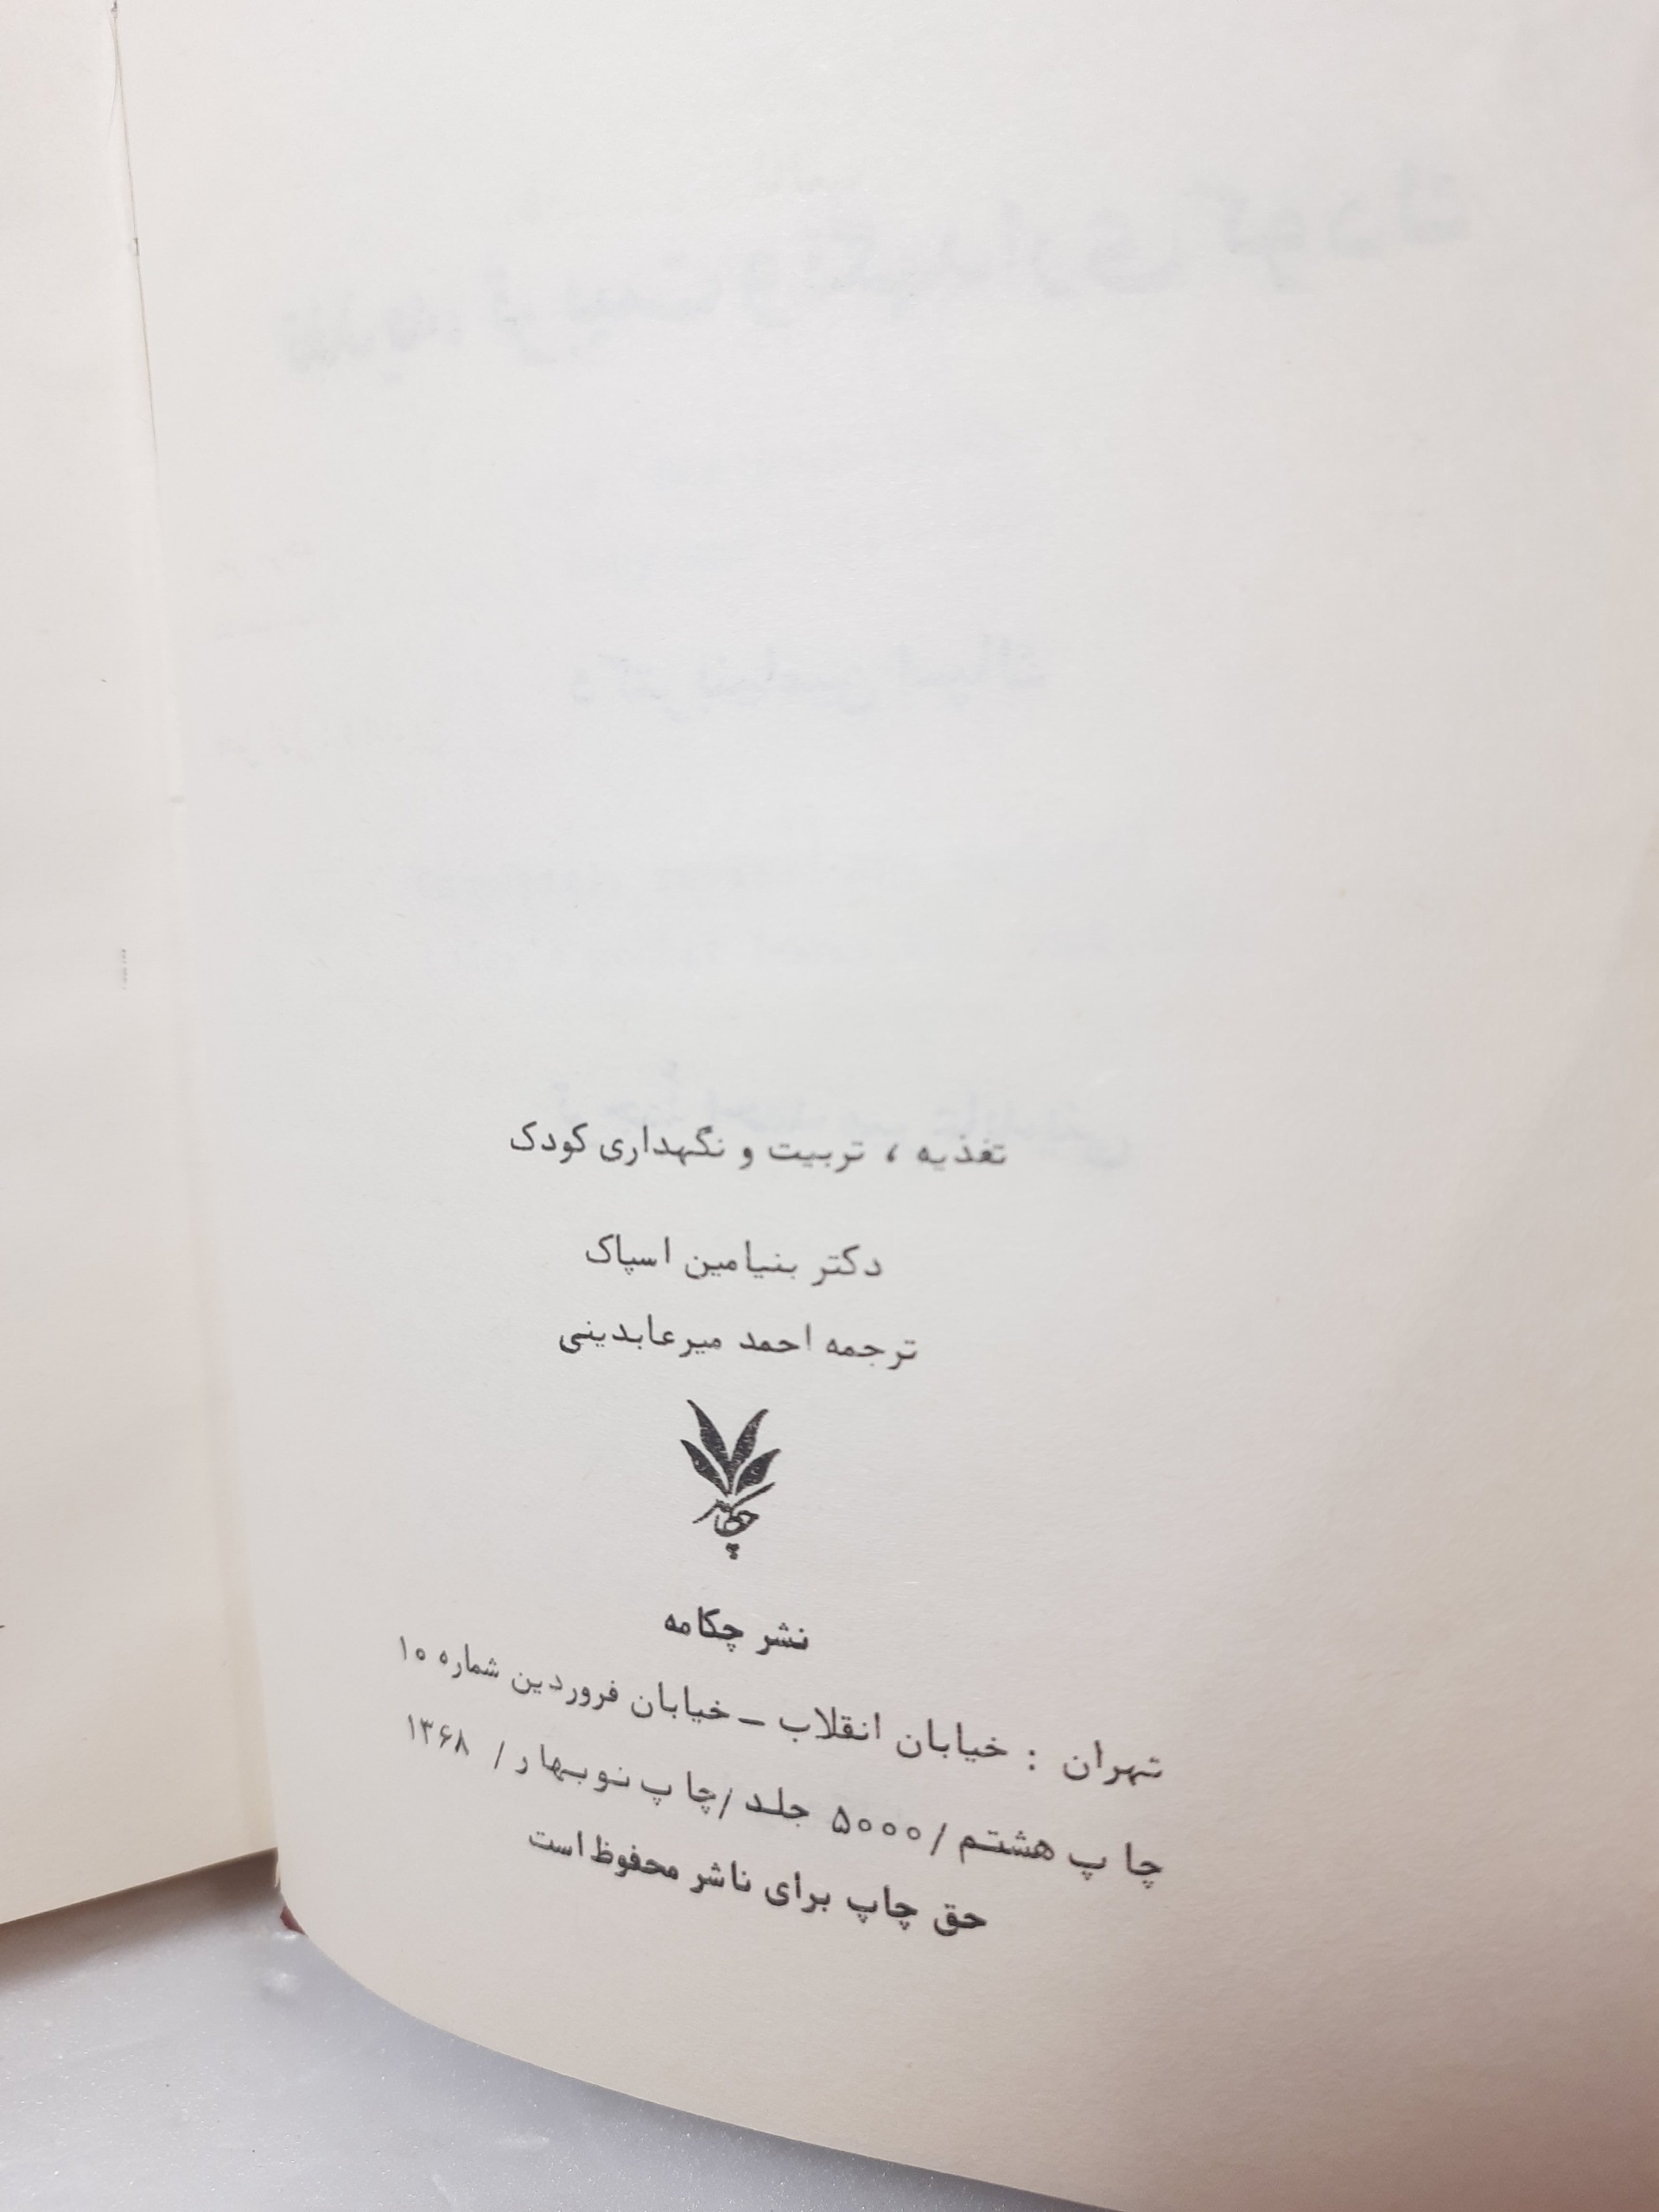 تغذیه ، تربیت و نگهداری کودک
دکتر بنیامین اسپاک
ترجمه احمد میرعابدینی
چکامه
نشر چکامه
تهران : خیابان انقلاب ــ خیابان فروردین شماره ۱۰
چاپ هشتم / ۵۰۰۰ جلد / چاپ نوبهار / ۱۳۶۸
حق چاپ برای ناشر محفوظ است